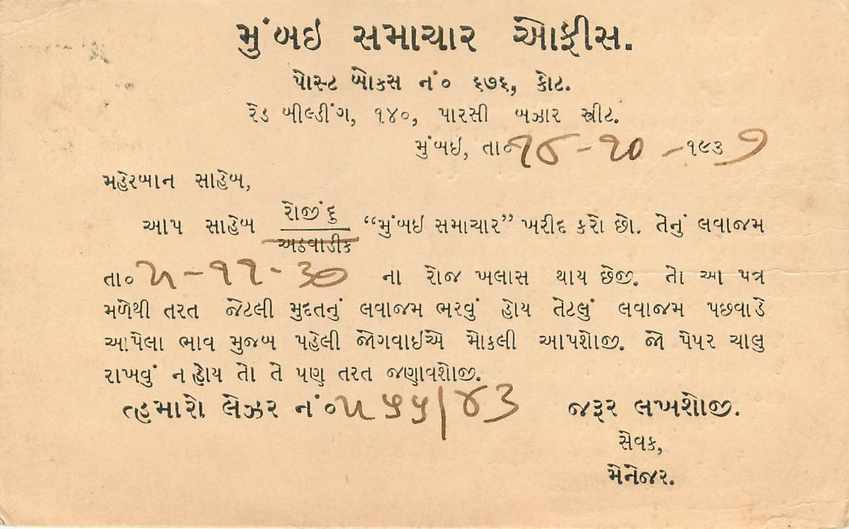 મુંબઇ સમાચાર ઓફીસ.
પોસ્ટ બોકસ નં૦ ૬૭૬, કોટ.
રેડ બીલ્ડીંગ, ૧૪૦, પારસી બઝાર સ્ત્રીટ.
મુંબઇ, તા૦ ૧૮-૧૦-૧૯૩૭
મહેરબાન સાહેબ,
આપ સાહેબ રોજીંદુ
અઠવાડીક “મુંબઇ સમાચાર” ખરીદ કરો છો. તેનું લવાજમ
તા૦ ૫-૧૧-૩૭ ના રોજ ખલાસ થાય છેજી. તો આ પત્ર
મળેથી તરત જેટલી મુદતનું લવાજમ ભરવું હોય તેટલું લવાજમ પછવાડે
આપેલા ભાવ મુજબ પહેલી જોગવાઈએ મોકલી આપશોજી. જો પેપર ચાલુ
રાખવું ન હોય તો તે પણ તરત જણાવશોજી.
ત્હમારો લેઝર નં૦ ૫૫૫/૪૩ જરૂર લખશોજી.
સેવક,
મેનેજર.